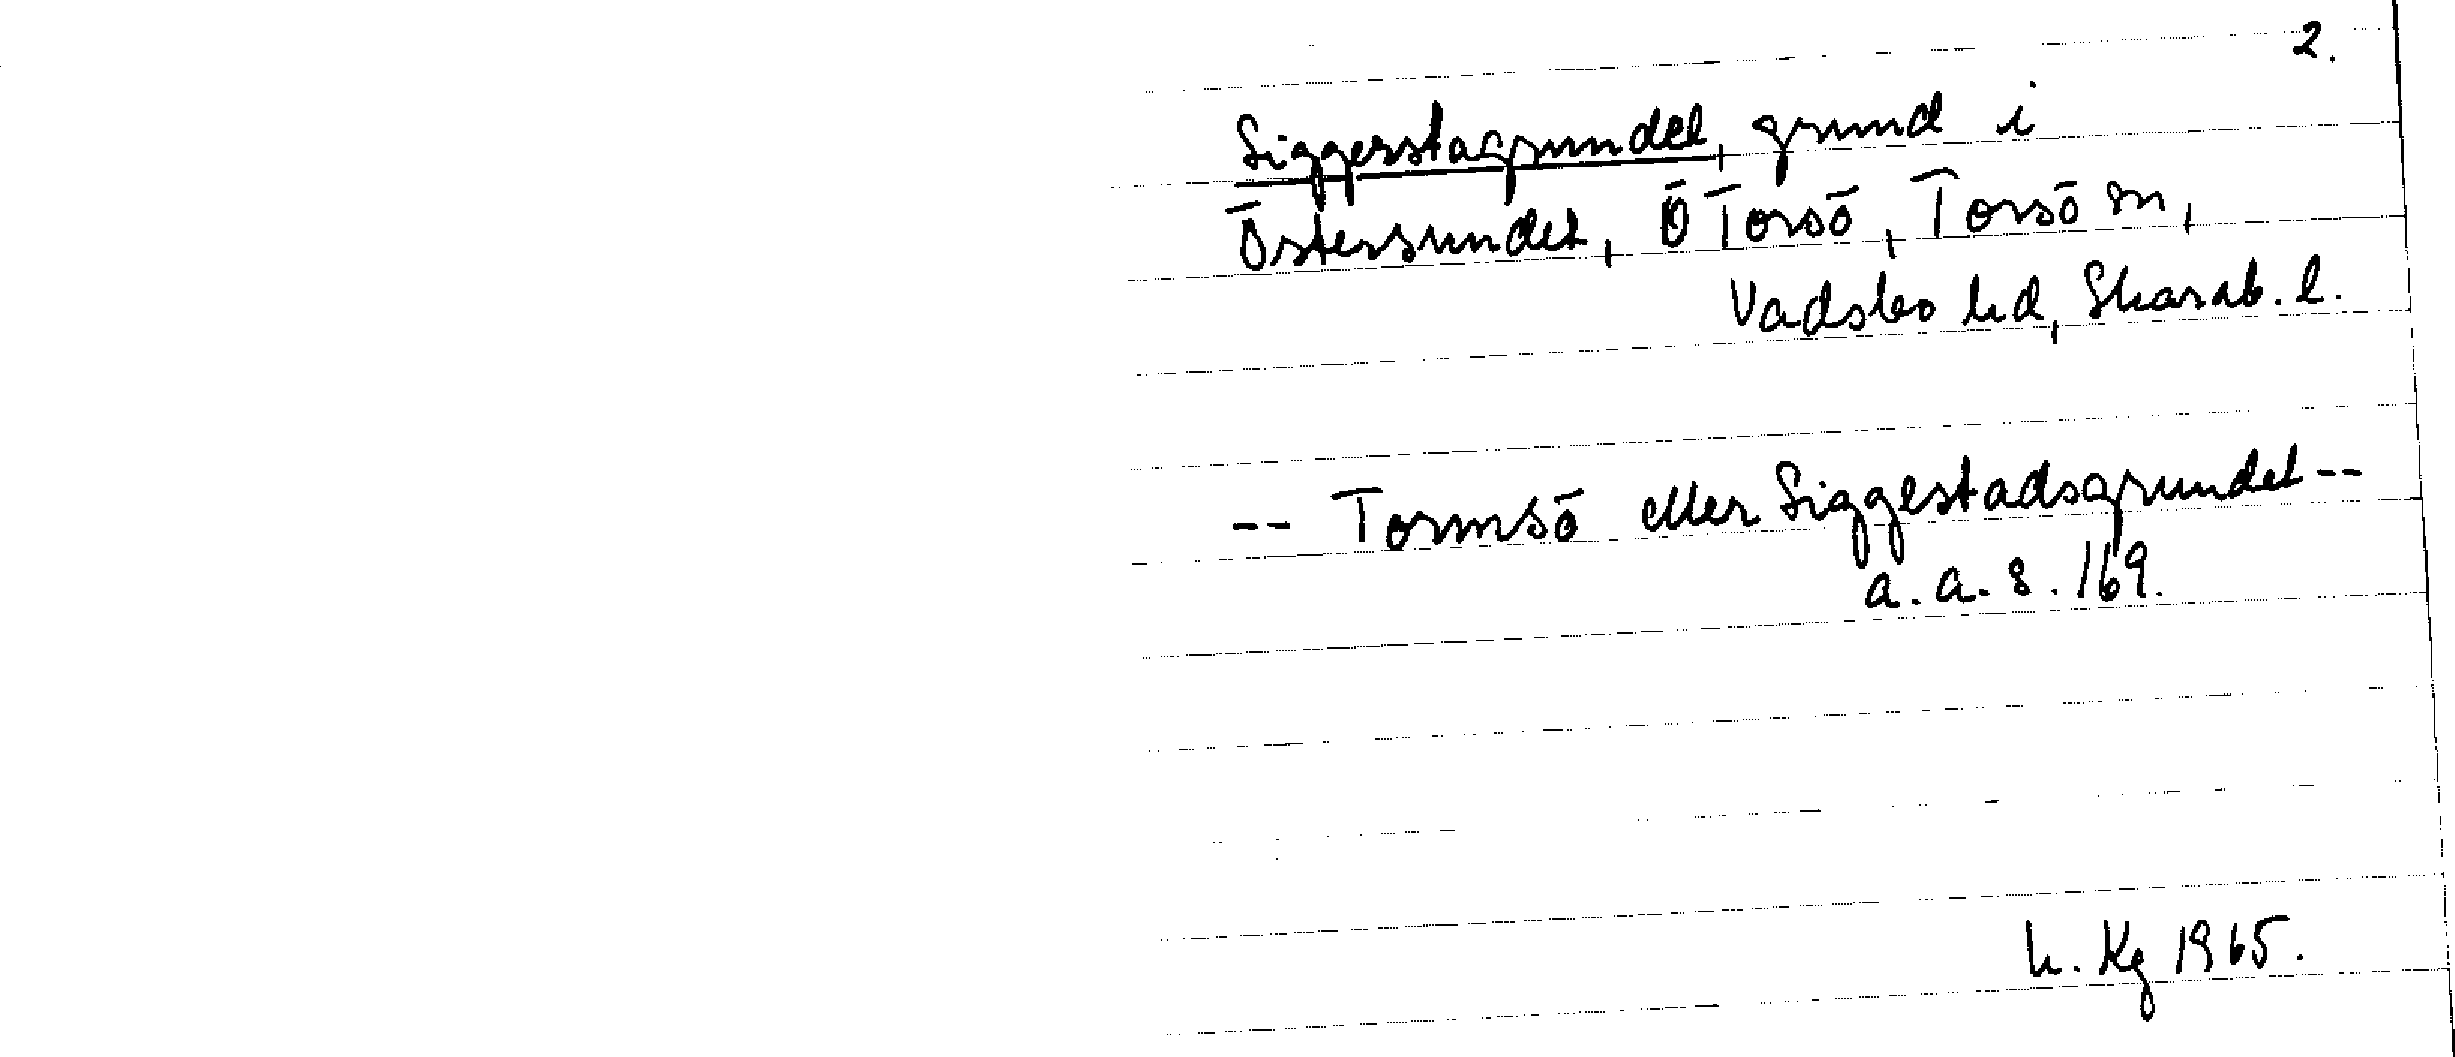 2.
Siggerstagrundet, grund i
Östersundet, Ö Torsö, Torsö sn,
Vadsbo hd, Skarab. l.
-- Tormsö eller Siggestadsgrundet --
a. a. s. 169.
h. Kg 1965.